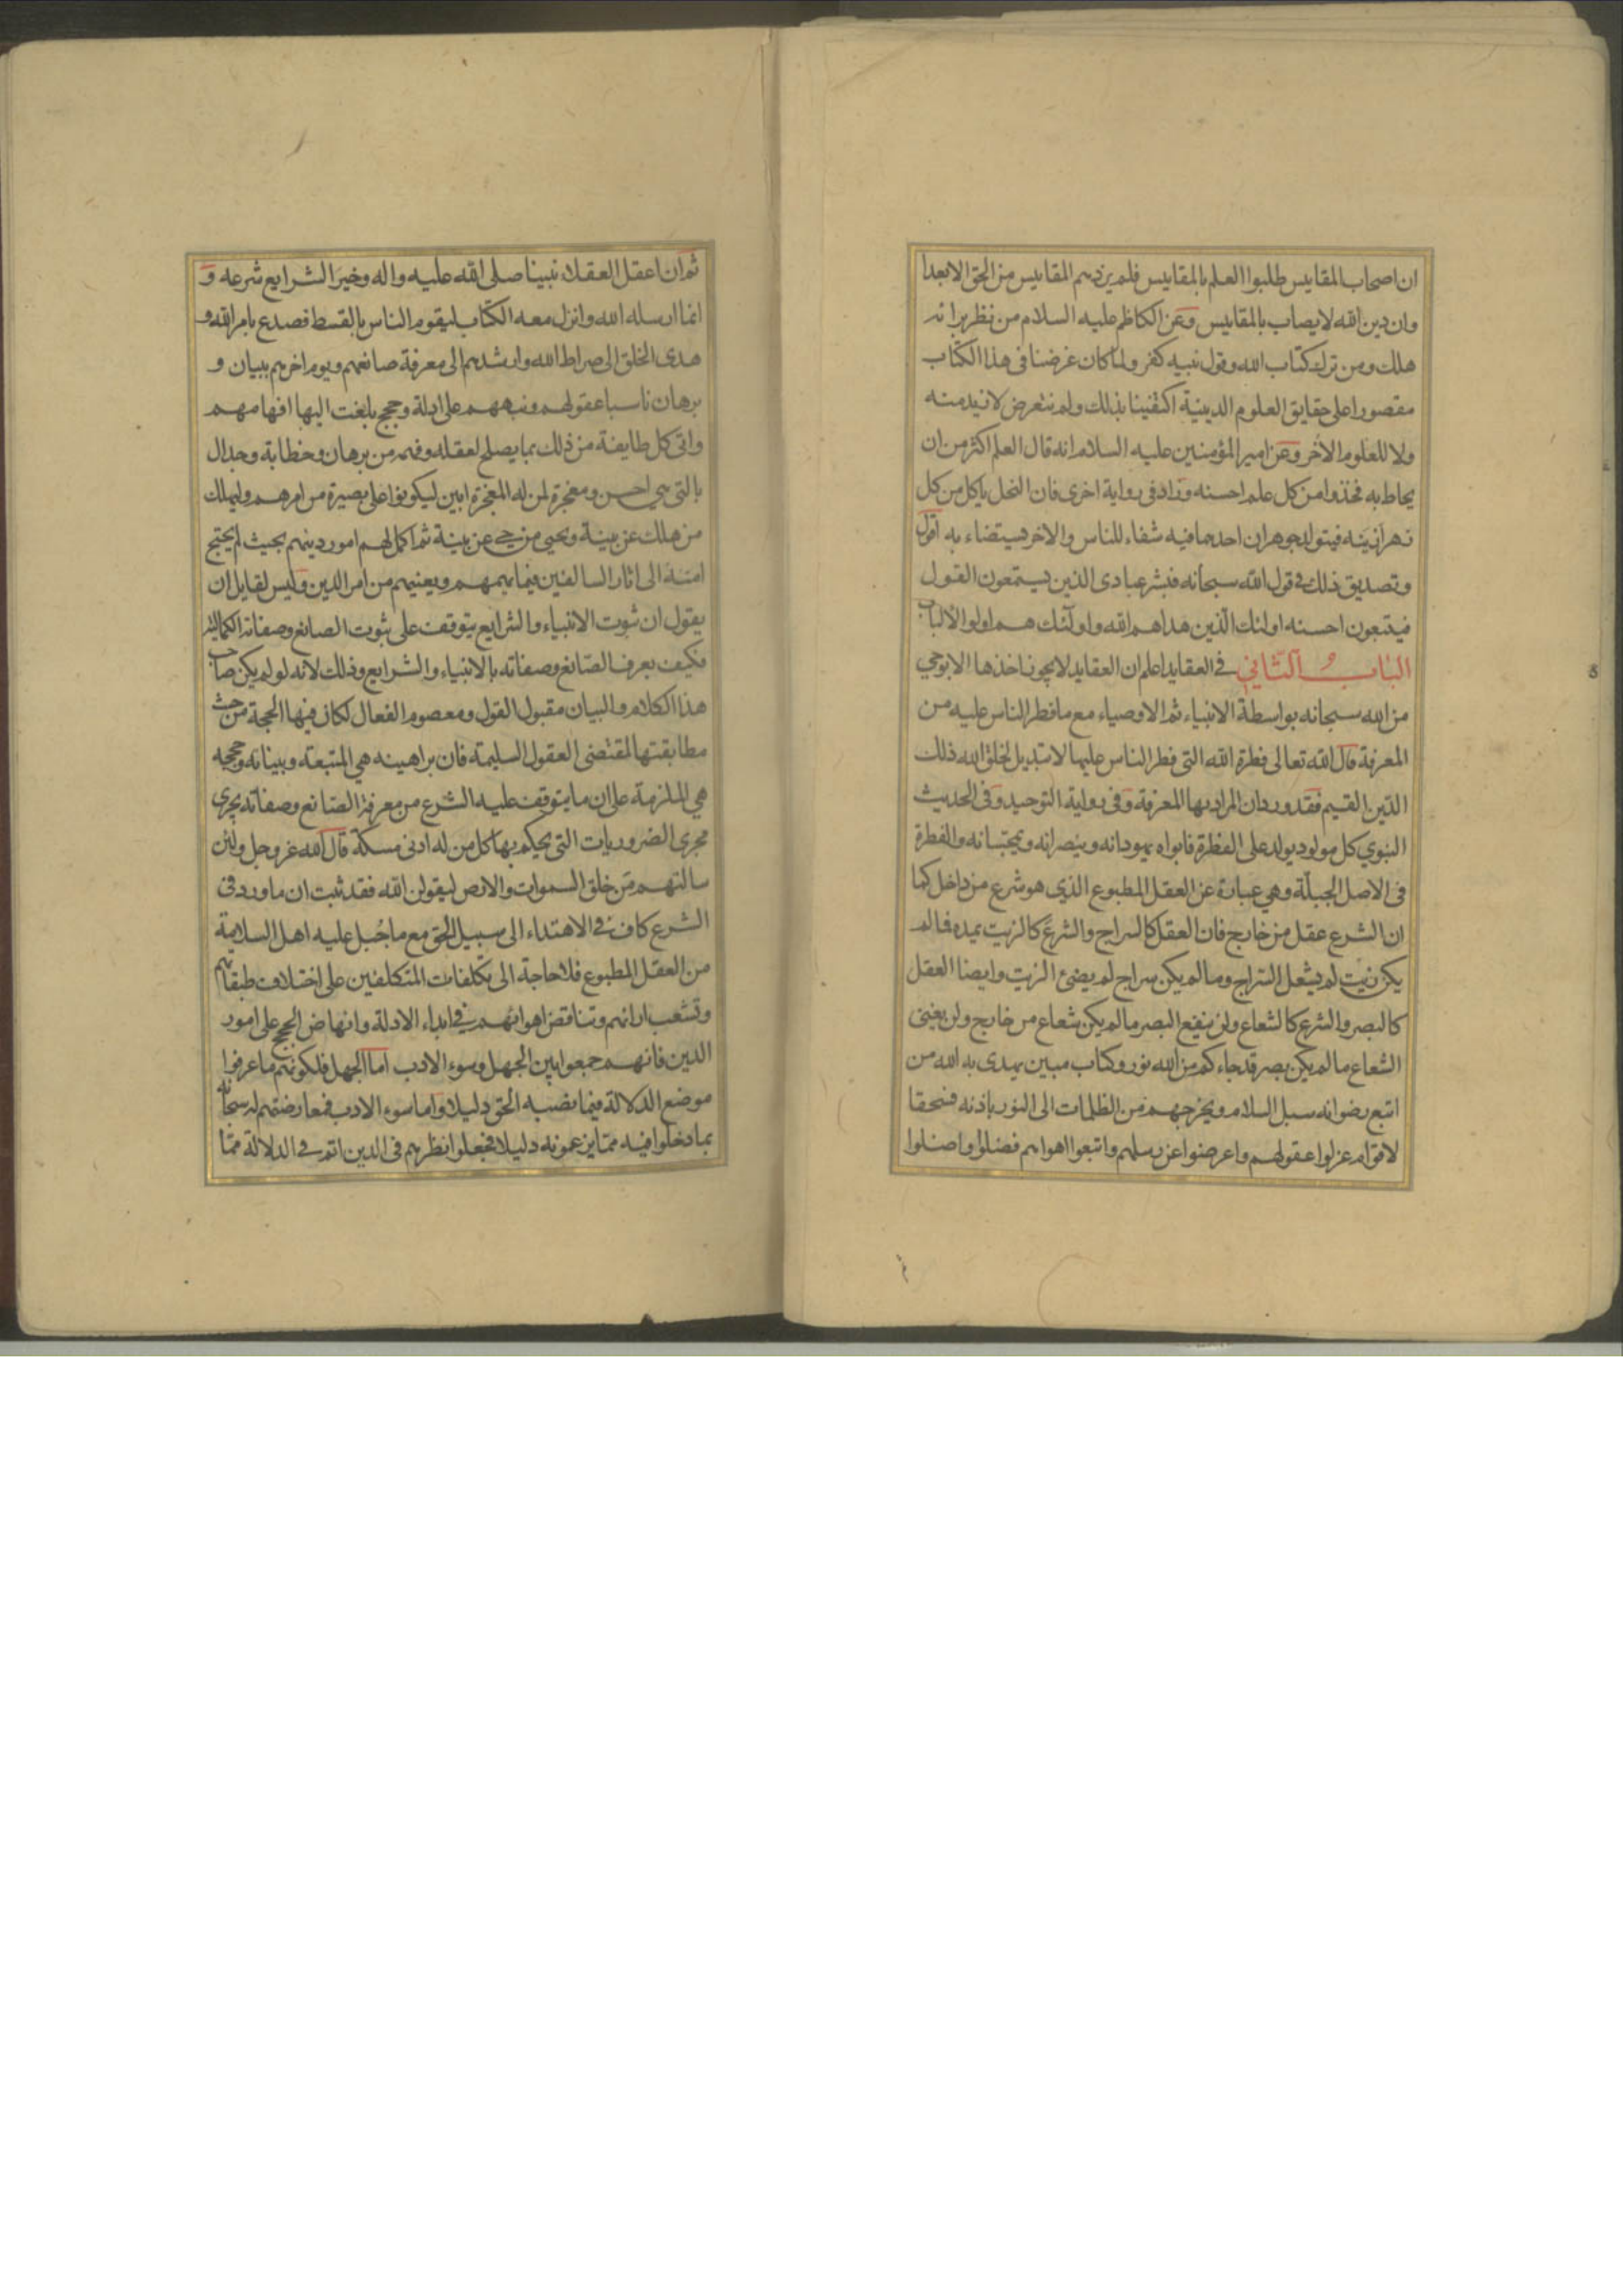 ان اصحاب المقاييس طلبوا العلم بالمقاييس فلم يزدهم المقاييس من الحق الا بعدا
وان دين الله لا يصاب بالمقاييس وعن الكاظم عليه السلام من نظر برائه
هلك ومن ترك كتاب الله وقول نبيه كفر ولما كان غرضنا فى هذا الكتاب
مقصورا على حقايق العلوم الدينية اكتفينا بذلك ولم نتعرض لازيد منه
ولا للعلوم الاخر وعن امير المؤمنين عليه السلام انه قال العلم اكثر من ان
يحاط به فخذوا من كل علم احسنه وزاد فى رواية اخرى فان النحل ياكل من كل
زهر ازينه فيتولد جوهران احدهما فيه شفاء للناس والاخر يستضاء به اقول
وتصديق ذلك فى قول الله سبحانه فبشر عبادى الذين يستمعون القول
فيتبعون احسنه اولئك الذين هداهم الله واولئك هم اولوا الالباب
الباب الثانى فى العقايد اعلم ان العقايد لا يجوز اخذها الا بوحى
من الله سبحانه بواسطة الانبياء ثم الاوصياء مع ما فطر الناس عليه من
المعرفة قال الله تعالى فطرة الله التى فطر الناس عليها لا تبديل لخلق الله ذلك
الدين القيم فقد ورد ان المراد بها المعرفة وفى رواية التوحيد وفى الحديث
النبوي كل مولود يولد على الفطرة فابواه يهودانه وينصرانه ويمجسانه والفطرة
فى الاصل الجبلة وهي عبارة عن العقل المطبوع الذى هو شرع من داخل كما
ان الشرع عقل من خارج فان العقل كالسراج والشرع كالزيت يمده فما لم
يكن زيت لم يشعل السراج وما لم يكن سراج لم يضئ الزيت وايضا العقل
كالبصر والشرع كالشعاع ولن ينفع البصر ما لم يكن شعاع من خارج ولن يغنى
الشعاع ما لم يكن بصر قد جاءكم من الله نور وكتاب مبين يهدى به الله من
اتبع رضوانه سبل السلام ويخرجهم من الظلمات الى النور باذنه فسحقا
لاقوام عزلوا عقولهم واعرضوا عن رسلهم واتبعوا اهواءهم فضلوا واضلوا
ثم ان اعقل العقلاء نبينا صلى الله عليه واله وخير الشرايع شرعه و
انما ارسله الله وانزل معه الكتاب ليقوم الناس بالقسط فصدع بامر الله و
هدى الخلق الى صراط الله وارشدهم الى معرفة صانعهم ويوم اخرهم ببيان و
برهان ناسبا عقولهم ونبههم على ادلة وحجج بلغت اليها افهامهم
واتى كل طايفة من ذلك بما يصلح لعقله وفهمه من برهان وخطابة وجدال
بالتى هى احسن ومعجزة لمن له المعجزة ابين ليكونوا على بصيرة من امرهم وليهلك
من هلك عن بينة ويحيى من حي عن بينة ثم اكمل لهم امور دينهم بحيث لم يحتج
امته الى اثار السالفين فيما يهمهم ويعنيهم من امر الدين وليس لقايل ان
يقول ان ثبوت الانبياء والشرايع يتوقف على ثبوت الصانع وصفاته الكمالية
فكيف يعرف الصانع وصفاته بالانبياء والشرايع وذلك لانه لو لم يكن صاحب
هذا الكلام والبيان مقبول القول ومعصوم الفعال لكان فيها الحجة من حيث
مطابقتها لمقتضى العقول السليمة فان براهينه هي المتبعة وبيناته وحججه
هي الملزمة على ان ما يتوقف عليه الشرع من معرفة الصانع وصفاته يجرى
مجرى الضروريات التى يحكم بها كل من له ادنى مسكة قال الله عز وجل ولئن
سالتهم من خلق السموات والارض ليقولن الله فقد ثبت ان ما ورد فى
الشرع كاف فى الاهتداء الى سبيل الحق مع ما جبل عليه اهل السلامة
من العقل المطبوع فلا حاجة الى تكلفات المتكلفين على اختلاف طبقاتهم
وتشعب ارائهم وتناقض اهوائهم فى ابداء الادلة وانهاض الحجج على امور
الدين فانهم جمعوا بين الجهل وسوء الادب اما الجهل فلكونهم ما عرفوا
موضع الدلالة فيما نصبه الحق دليلا واما سوء الادب فمعارضتهم له سبحانه
بما دخلوا فيه مما يزعمونه دليلا فجعلوا نظرهم فى الدين اتم فى الدلالة مما